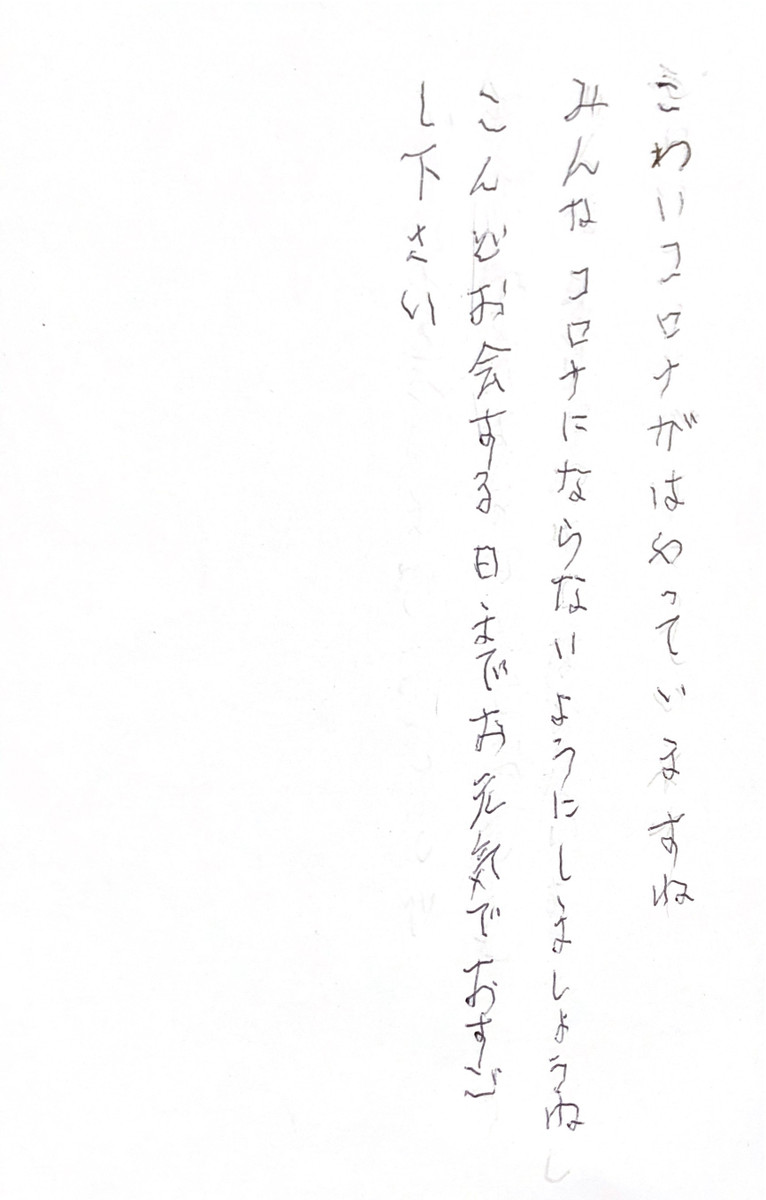 こわいコロナがはやっていますね
みんなコロナにならないようにしましょうね
こんどお会する日までお元気でおすご
し下さい